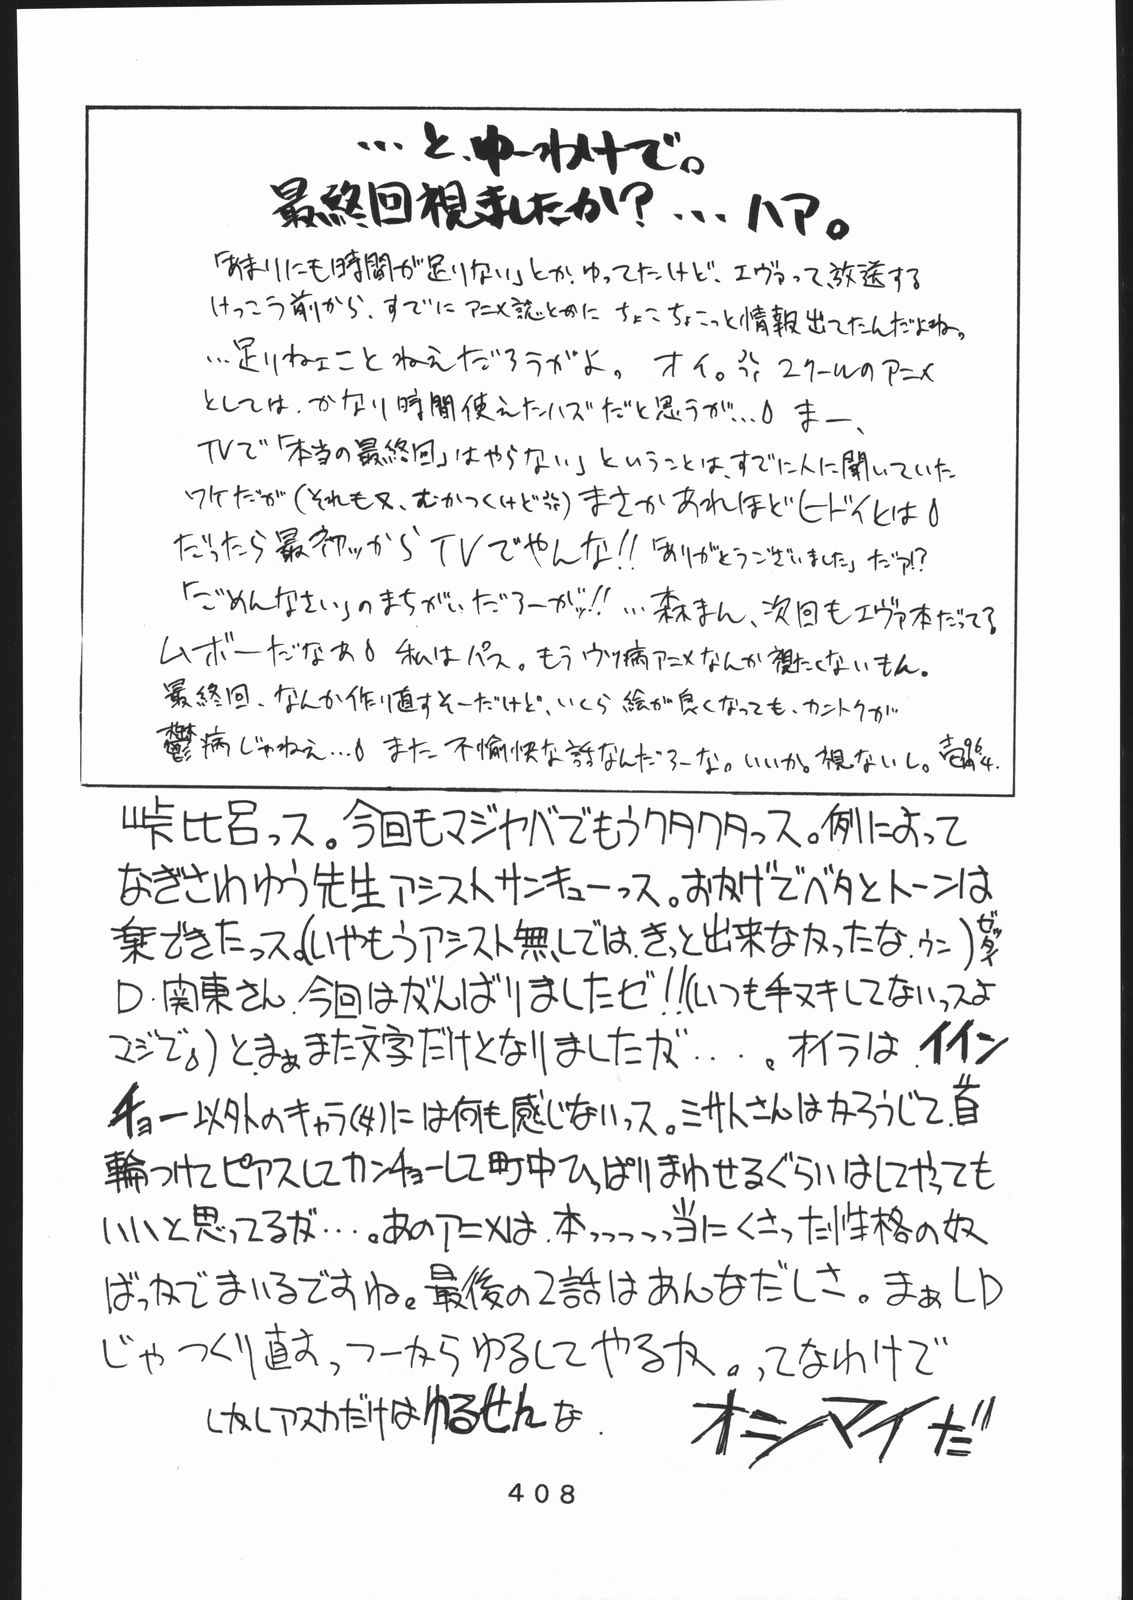 …と、ゆーわけで。
最終回視ましたか?…ハア。
「あまりにも時間が足りない」とか、ゆってたけど、エヴァって、放送する
けっこう前から、すでにアニメ誌とかにちょこちょこっと情報出てたんだよね。
…足りねェことねえだろうがよ。オイ。2クールのアニメ
としては、かなり時間使えたハズだと思うが…。まー、
TVで「本当の最終回」はやらない」ということは、すでに人に聞いていた
ワケだが(それも又、むかつくけど)まさかあれほどヒドイとは
だったら最初ッからTVでやんな!!「ありがとうございました」だァ!?
「ごめんなさい」のまちがいだろーがッ!!…森まん、次回もエヴァ本だってる
ムボーだなぁ 私はパス。もうウツ病アニメなんか視たくないもん。
最終回、なんか作り直すそーだけど、いくら絵が良くなっても、カントクが
鬱病じゃねえ…また不愉快な話なんだろーな。いいか。視ないし。'96.4.
峠比呂っス。今回もマジヤバでもうクタクタっス。例によって
なぎさわゆう先生アシストサンキューっス。おかげでベタとトーンは
楽できたっス。(いやもうアシスト無しでは、きっと出来なかったな.ウン)ゼッタイ
D・関東さん.今回はがんばりましたぜ!!(いつも手ヌキしてないっスよ
マジで)とまぁまた文字だけとなりましたが・・・・。オイラはイイン
チョー以外のキャラ(女)には何も感じないっス。ミサトさんはかろうじて、首
輪つけてピアスしてカンチョーして町中ひっぱりまわせるぐらいはしてやっても
いいと思ってるが・・・・。あのアニメは、本っっっっっ当にくさった性格の奴
ばっかでまいるですね。最後の2話はあんなだしさ。まぁLD
じゃつくり直すっつーからゆるしてやるか。ってなわけで
しかしアスカだけはゆるせんな.
オシマイだ
408